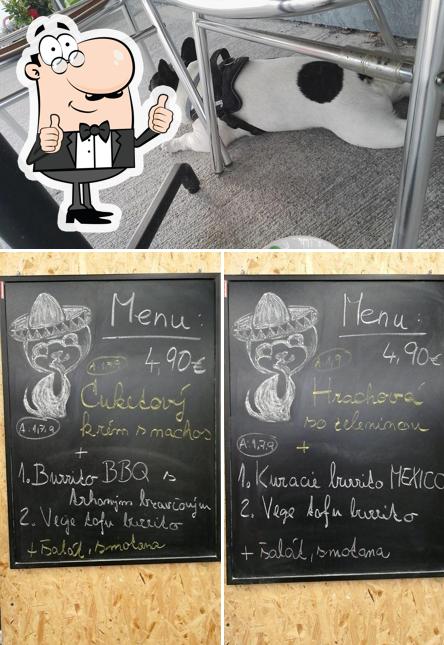 Menu:
4,90€
A:1,7,9
Cuketový
krém s nachos
A:1,7,9
+
1. Burrito BBQ s
trhaným bravčovým
2. Vege tofu burrito
+ šalát, smotana
Menu:
4,90€
Hrachová
so zeleninou
A:1,7,9
+
1. Kuracie burrito MEXICO
2. Vege tofu burrito
+ šalát, smotana